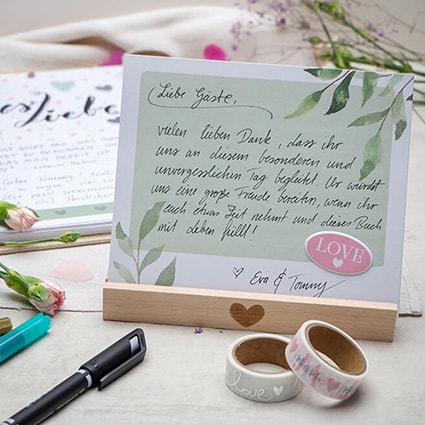 Liebe Gäste,
vielen lieben Dank, dass ihr
uns an diesem besonderen und
unvergesslichen Tag begleitet. Ihr würdet
uns eine große Freude bereiten, wenn ihr
euch etwas Zeit nehmt und dieses Buch
mit Leben füllt!
♡ Eva & Tommy
LOVE
Liebe
love